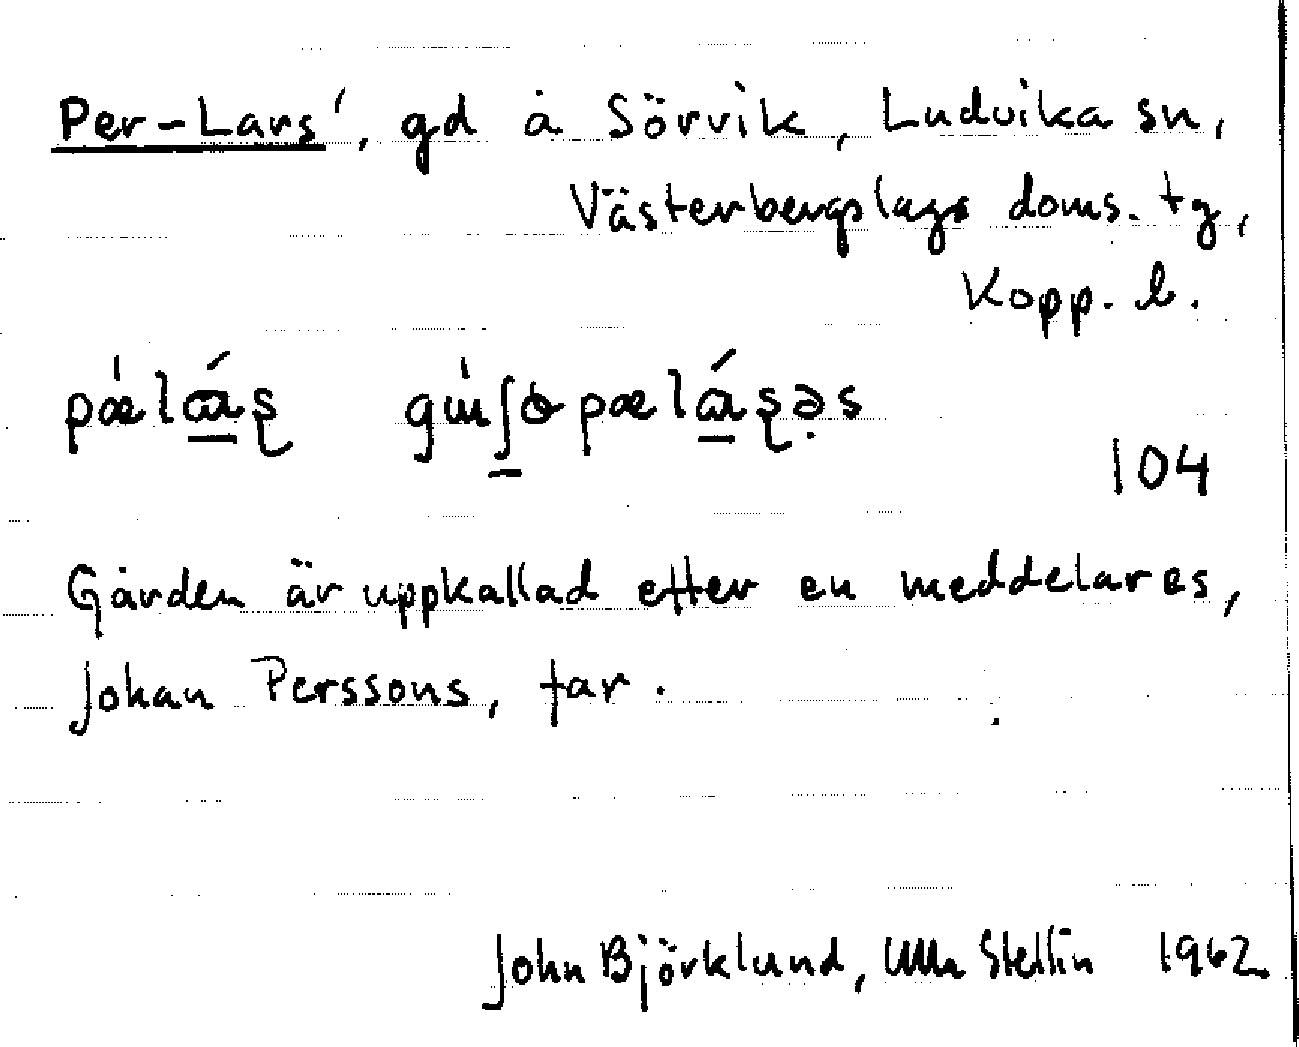 Per-Lars', gd å Sörvik, Ludvika sn,
Västerbergslags doms. tg,
Kopp. l.
104
Gården är uppkallad efter en meddelares,
Johan Perssons, far.
John Björklund, Ulla Stellin 1962